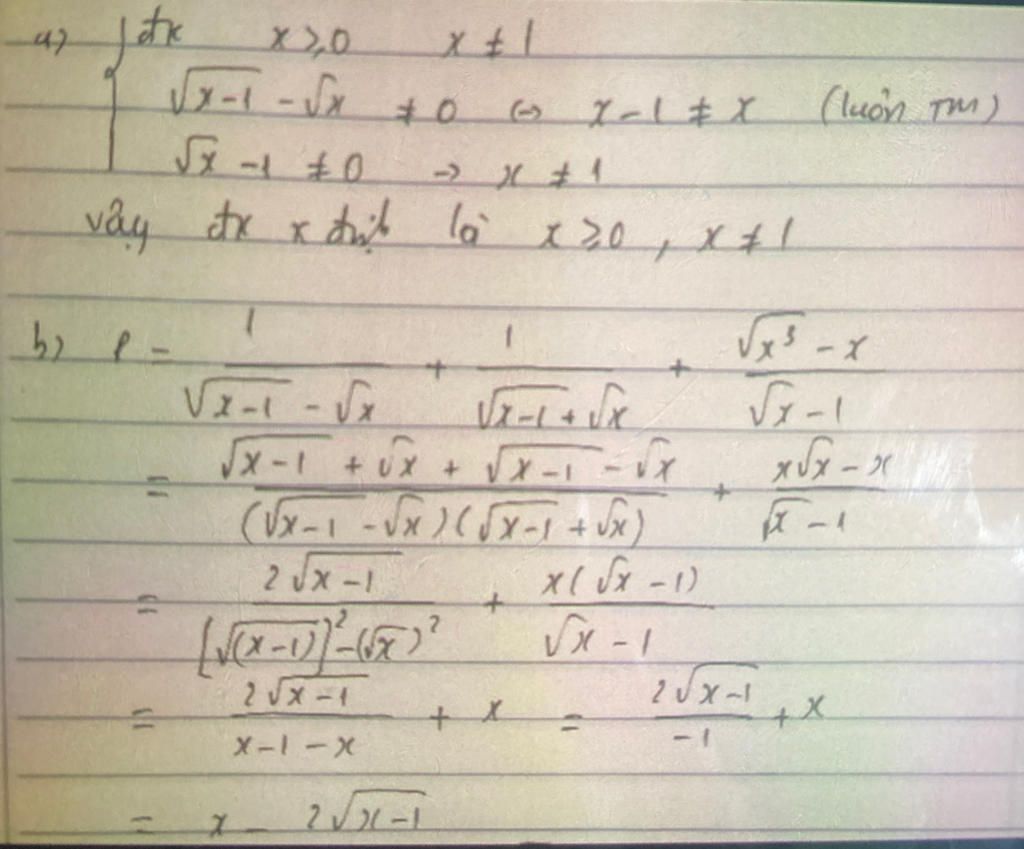 a) { đk x ≥ 0 x ≠ 1
√(x-1) - √x ≠ 0 ⇔ x-1 ≠ x (luôn TM)
√x - 1 ≠ 0 → x ≠ 1
vậy đk x định là x ≥ 0, x ≠ 1
b) P = 1/(√(x-1) - √x) + 1/(√(x-1) + √x) + (√(x³) - x)/(√x - 1)
= (√(x-1) + √x + √(x-1) - √x)/((√(x-1) - √x)(√(x-1) + √x)) + (x√x - x)/(√x - 1)
= 2√(x-1)/([√(x-1)]² - (√x)²) + x(√x - 1)/(√x - 1)
= 2√(x-1)/(x-1-x) + x = 2√(x-1)/(-1) + x
= x - 2√(x-1)